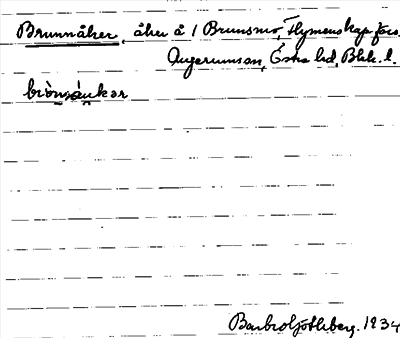 Brunnåker, åker å 1 Brunsmo, Flymenskap förs.
Augerumssn, Östra hd, Blek. l.
Barbro Götlberg. 1934